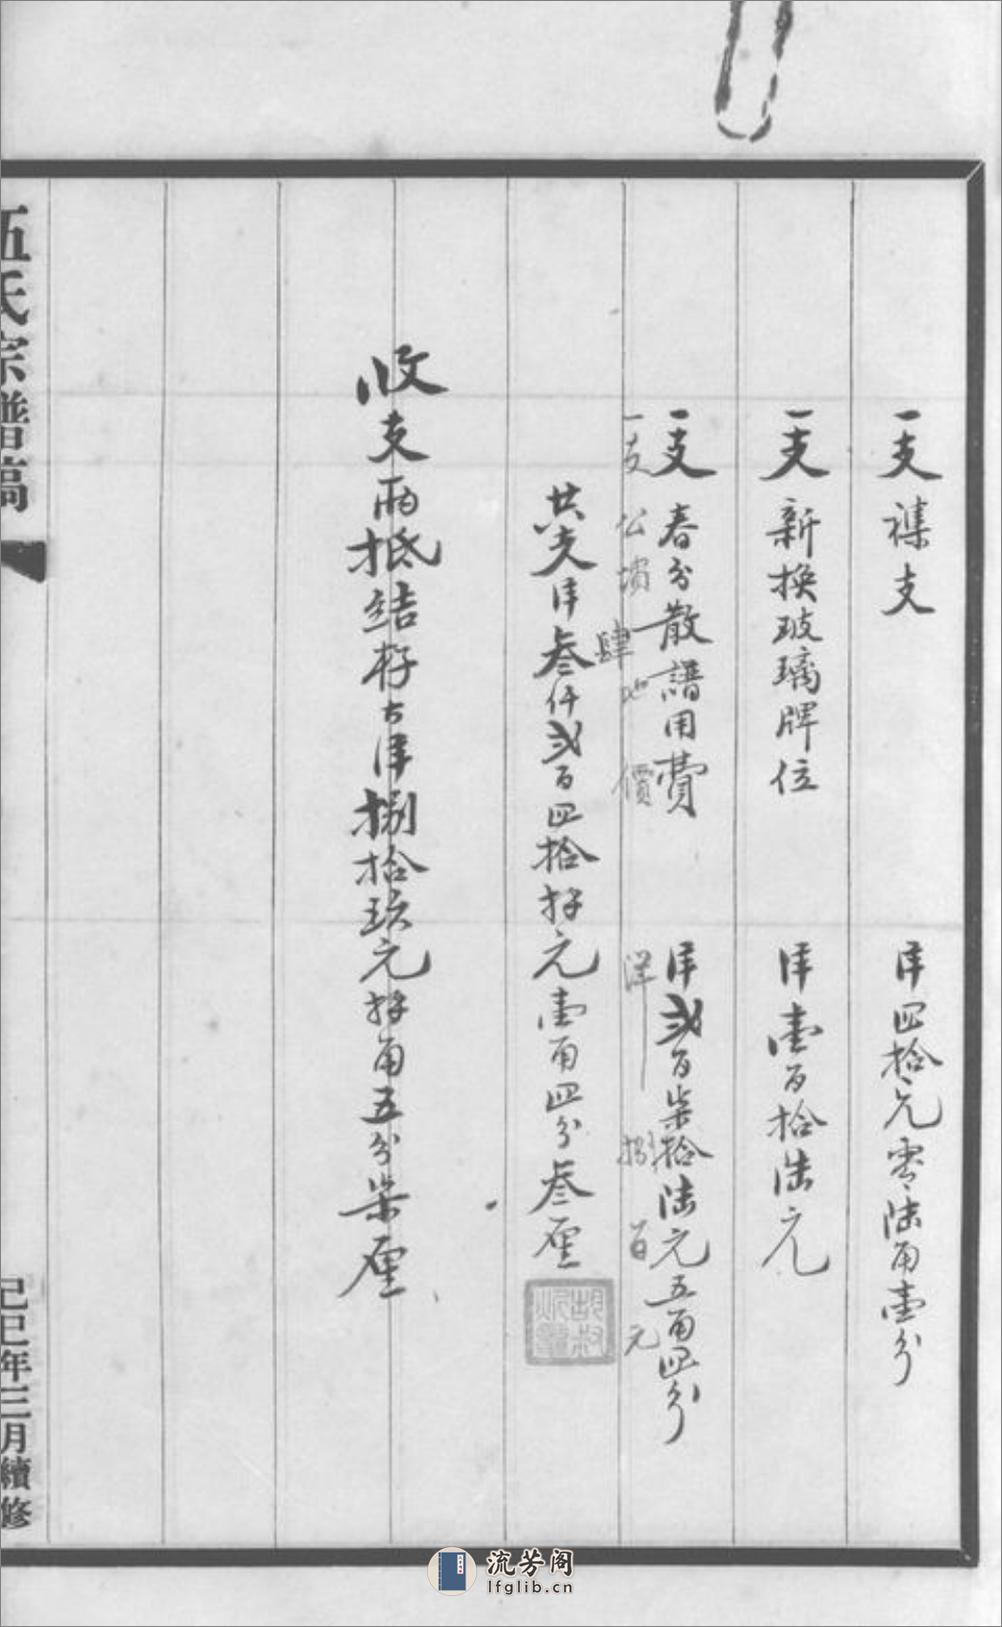 一支 襍支 洋四拾元零陆角壹分
一支 新換玻璃牌位 洋壹百拾陆元
一支 春分散譜用費 洋弍百柒拾陆元五角四分
一支 公墳肆地價 洋捌百元
共支洋叁仟弍百四拾元壹角四分叁厘
收支兩抵結存大洋捌拾玖元角五分柒厘
伍氏宗譜稿
己巳年三月續修
流芳阁
lfglib.cn